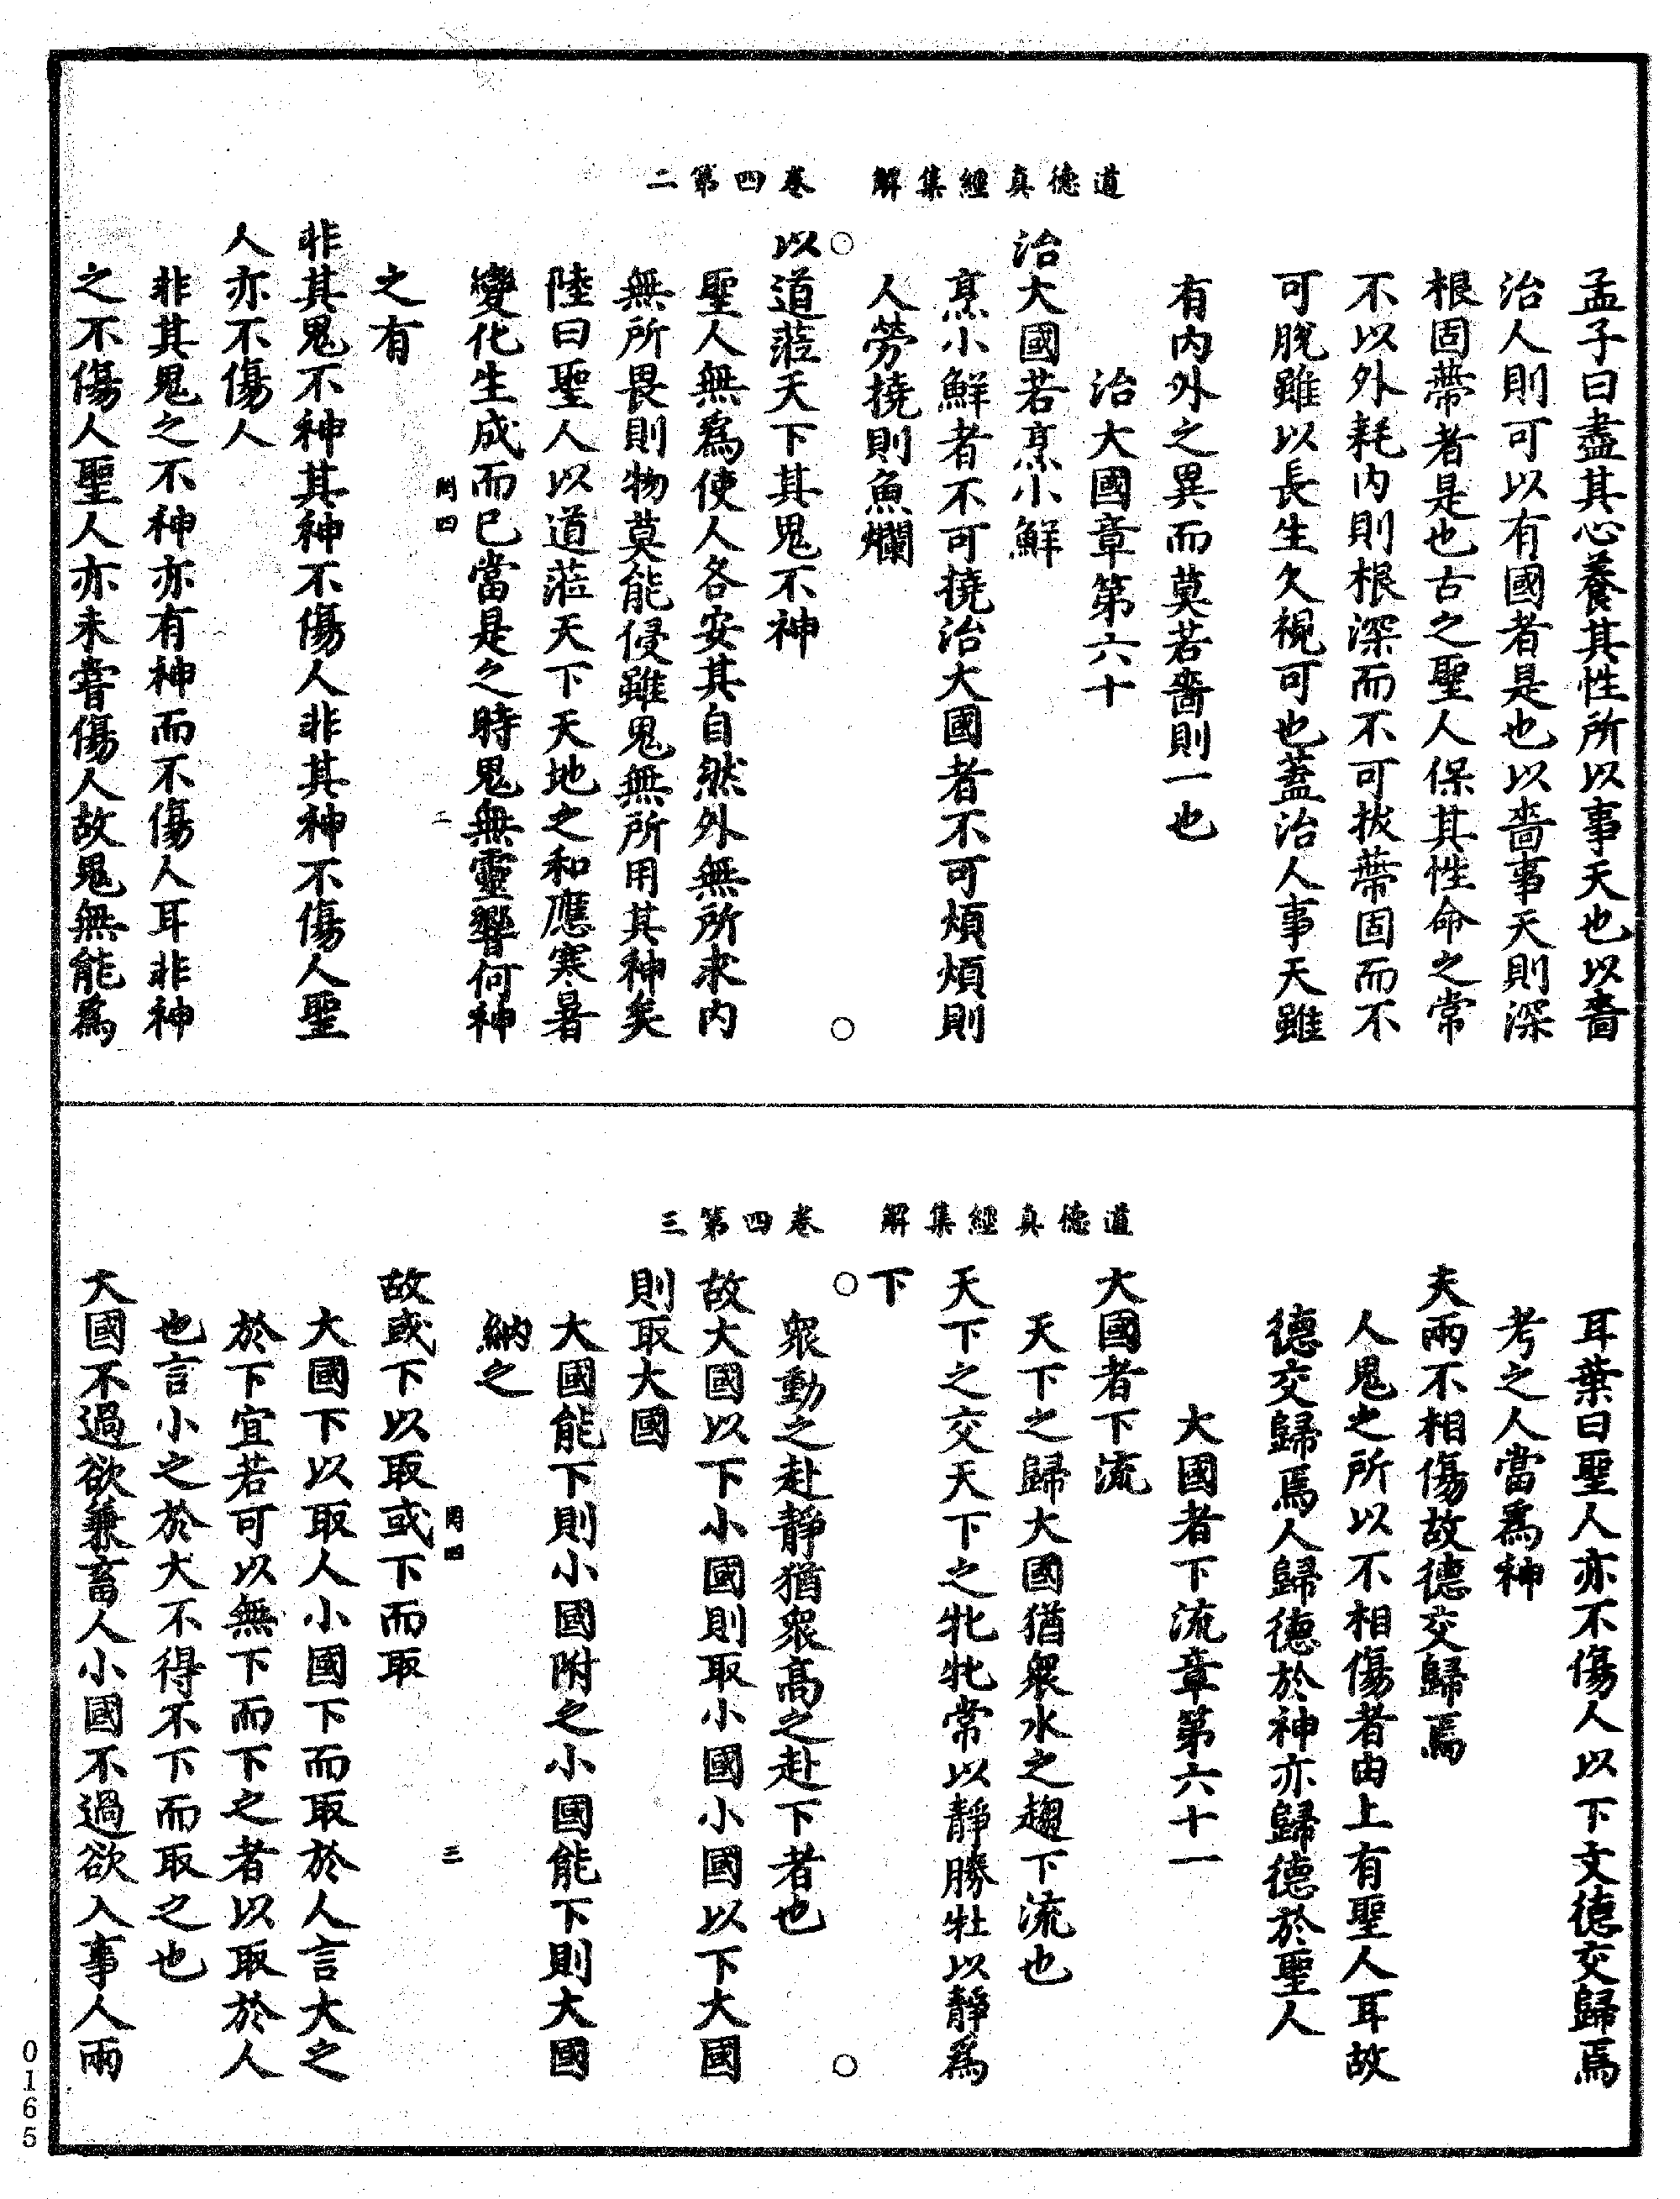 道德真經集解　卷四第二
孟子曰盡其心養其性所以事天也以嗇
治人則可以有國者是也以嗇事天則深
根固蔕者是也古之聖人保其性命之常
不以外耗內則根深而不可拔蔕固而不
可脫雖以長生久視可也蓋治人事天雖
有內外之異而莫若嗇則一也
治大國章第六十
治大國若烹小鮮
烹小鮮者不可撓治大國者不可煩煩則
人勞撓則魚爛
以道蒞天下其鬼不神
聖人無為使人各安其自然外無所求內
無所畏則物莫能侵雖鬼無所用其神矣
陸曰聖人以道蒞天下天地之和應寒暑
變化生成而已當是之時鬼無靈響何神
二
之有
非其鬼不神其神不傷人非其神不傷人聖
人亦不傷人
非其鬼之不神亦有神而不傷人耳非神
之不傷人聖人亦未嘗傷人故鬼無能為
道德真經集解　卷四第三
耳葉曰聖人亦不傷人以下文德交歸焉
考之人當為神
夫兩不相傷故德交歸焉
人鬼之所以不相傷者由上有聖人耳故
德交歸焉人歸德於神亦歸德於聖人
大國者下流章第六十一
大國者下流
天下之歸大國猶眾水之趨下流也
天下之交天下之牝牝常以靜勝牡以靜為
下
眾動之赴靜猶眾高之赴下者也
故大國以下小國則取小國小國以下大國
則取大國
大國能下則小國附之小國能下則大國
納之
三
故或下以取或下而取
大國下以取人小國下而取於人言大之
於下宜若可以無下而下之者以取於人
也言小之於大不得不下而取之也
大國不過欲兼畜人小國不過欲入事人兩
0165